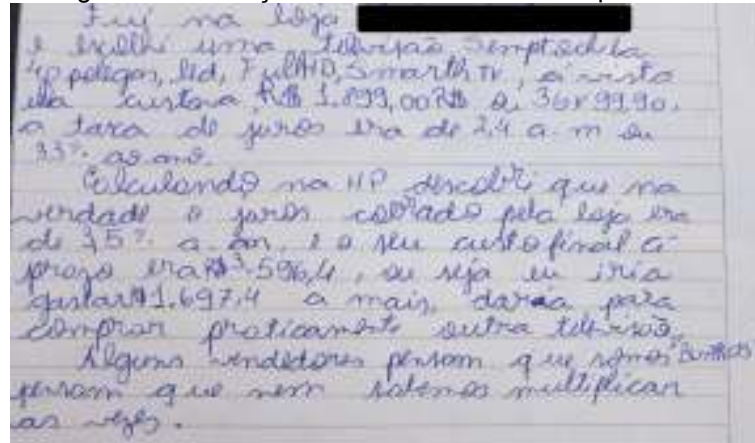 Fui na loja
e escolhi uma televisão Semptoshiba
40 pelegas, led, FullHD, Smarth TV, à vista
ela custava R$ 1.899,00R$ e 36x99,90.
a taxa de juros era de 2,4 a.m ou
33% ao ano.
Calculando na HP descobri que na
verdade o juros cobrado pela loja era
de 3,5% a. , e o seu custo final a
prazo era R$3.596,4, ou seja eu iria
gastar$1.697,4 a mais, daria para
comprar praticamente outra televisão.
Alguns vendedores pensam que somos "BURROS"
pensam que nem sabemos multiplicar
as vezes.